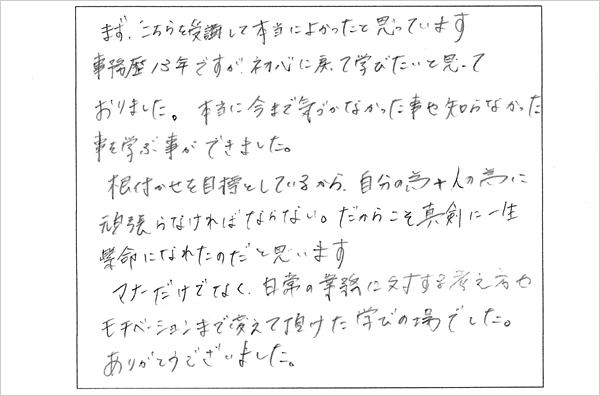 まず、こちらを受講して本当によかったと思っています
事務歴13年ですが、初心に戻って学びたいと思って
おりました。本当に今まで気づかなかった事や知らなかった
事を学ぶ事ができました。
根付かせを目標としているから、自分の為+人の為に
頑張らなければならない。だからこそ真剣に一生
懸命になれたのだと思います
マナーだけでなく、日常の業務に対する考え方や
モチベーションまで変えて頂けた学びの場でした。
ありがとうございました。